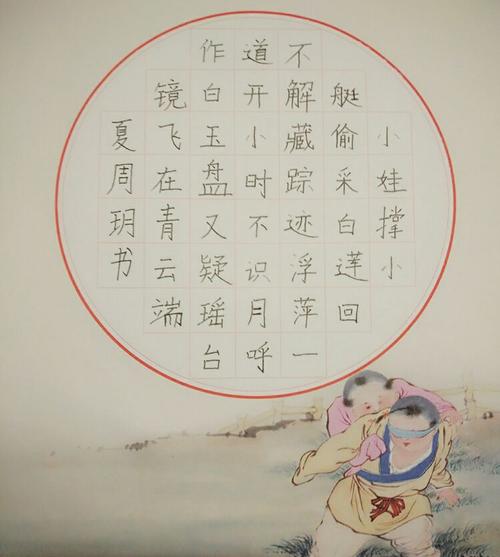 小娃撑小
艇偷采白莲回
不解藏踪迹浮萍一
道开小时不识月呼
作白玉盘又疑瑶台
镜飞在青云端
夏周玥书